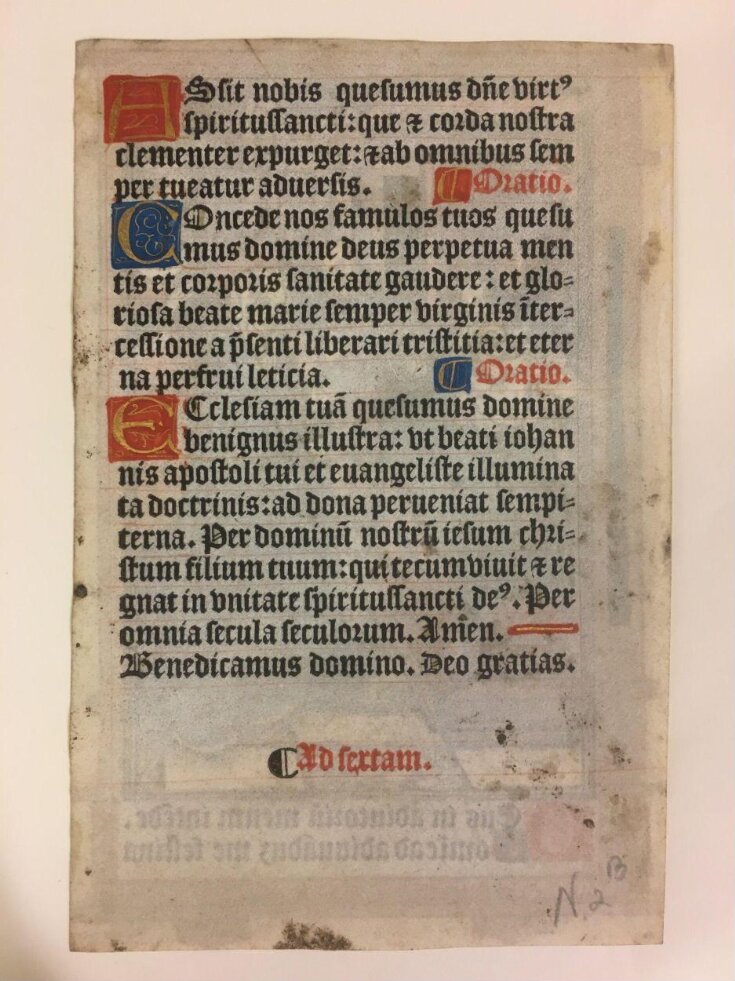 ASsit nobis quesumus dñe virtꝰ
spiritussancti: que ⁊ corda nostra
clementer expurget: ⁊ ab omnibus sem
per tueatur aduersis. ⸿ Oratio.
COncede nos famulos tuos quesu
mus domine deus perpetua men
tis et corporis sanitate gaudere: et glo=
riosa beate marie semper virginis īter=
cessione a p̄senti liberari tristitia: et eter
na perfrui leticia. ⸿ Oratio.
ECclesiam tuā quesumus domine
benignus illustra: vt beati iohan
nis apostoli tui et euangeliste illumina
ta doctrinis: ad dona perueniat sempi=
terna. Per dominū nostrū iesum chri=
stum filium tuum: qui tecum viuit ⁊ re
gnat in vnitate spiritussancti deꝰ. Per
omnia secula seculorum. Amēn.
Benedicamus domino. Deo gratias.
⸿ Ad sextam.
N. 2 B